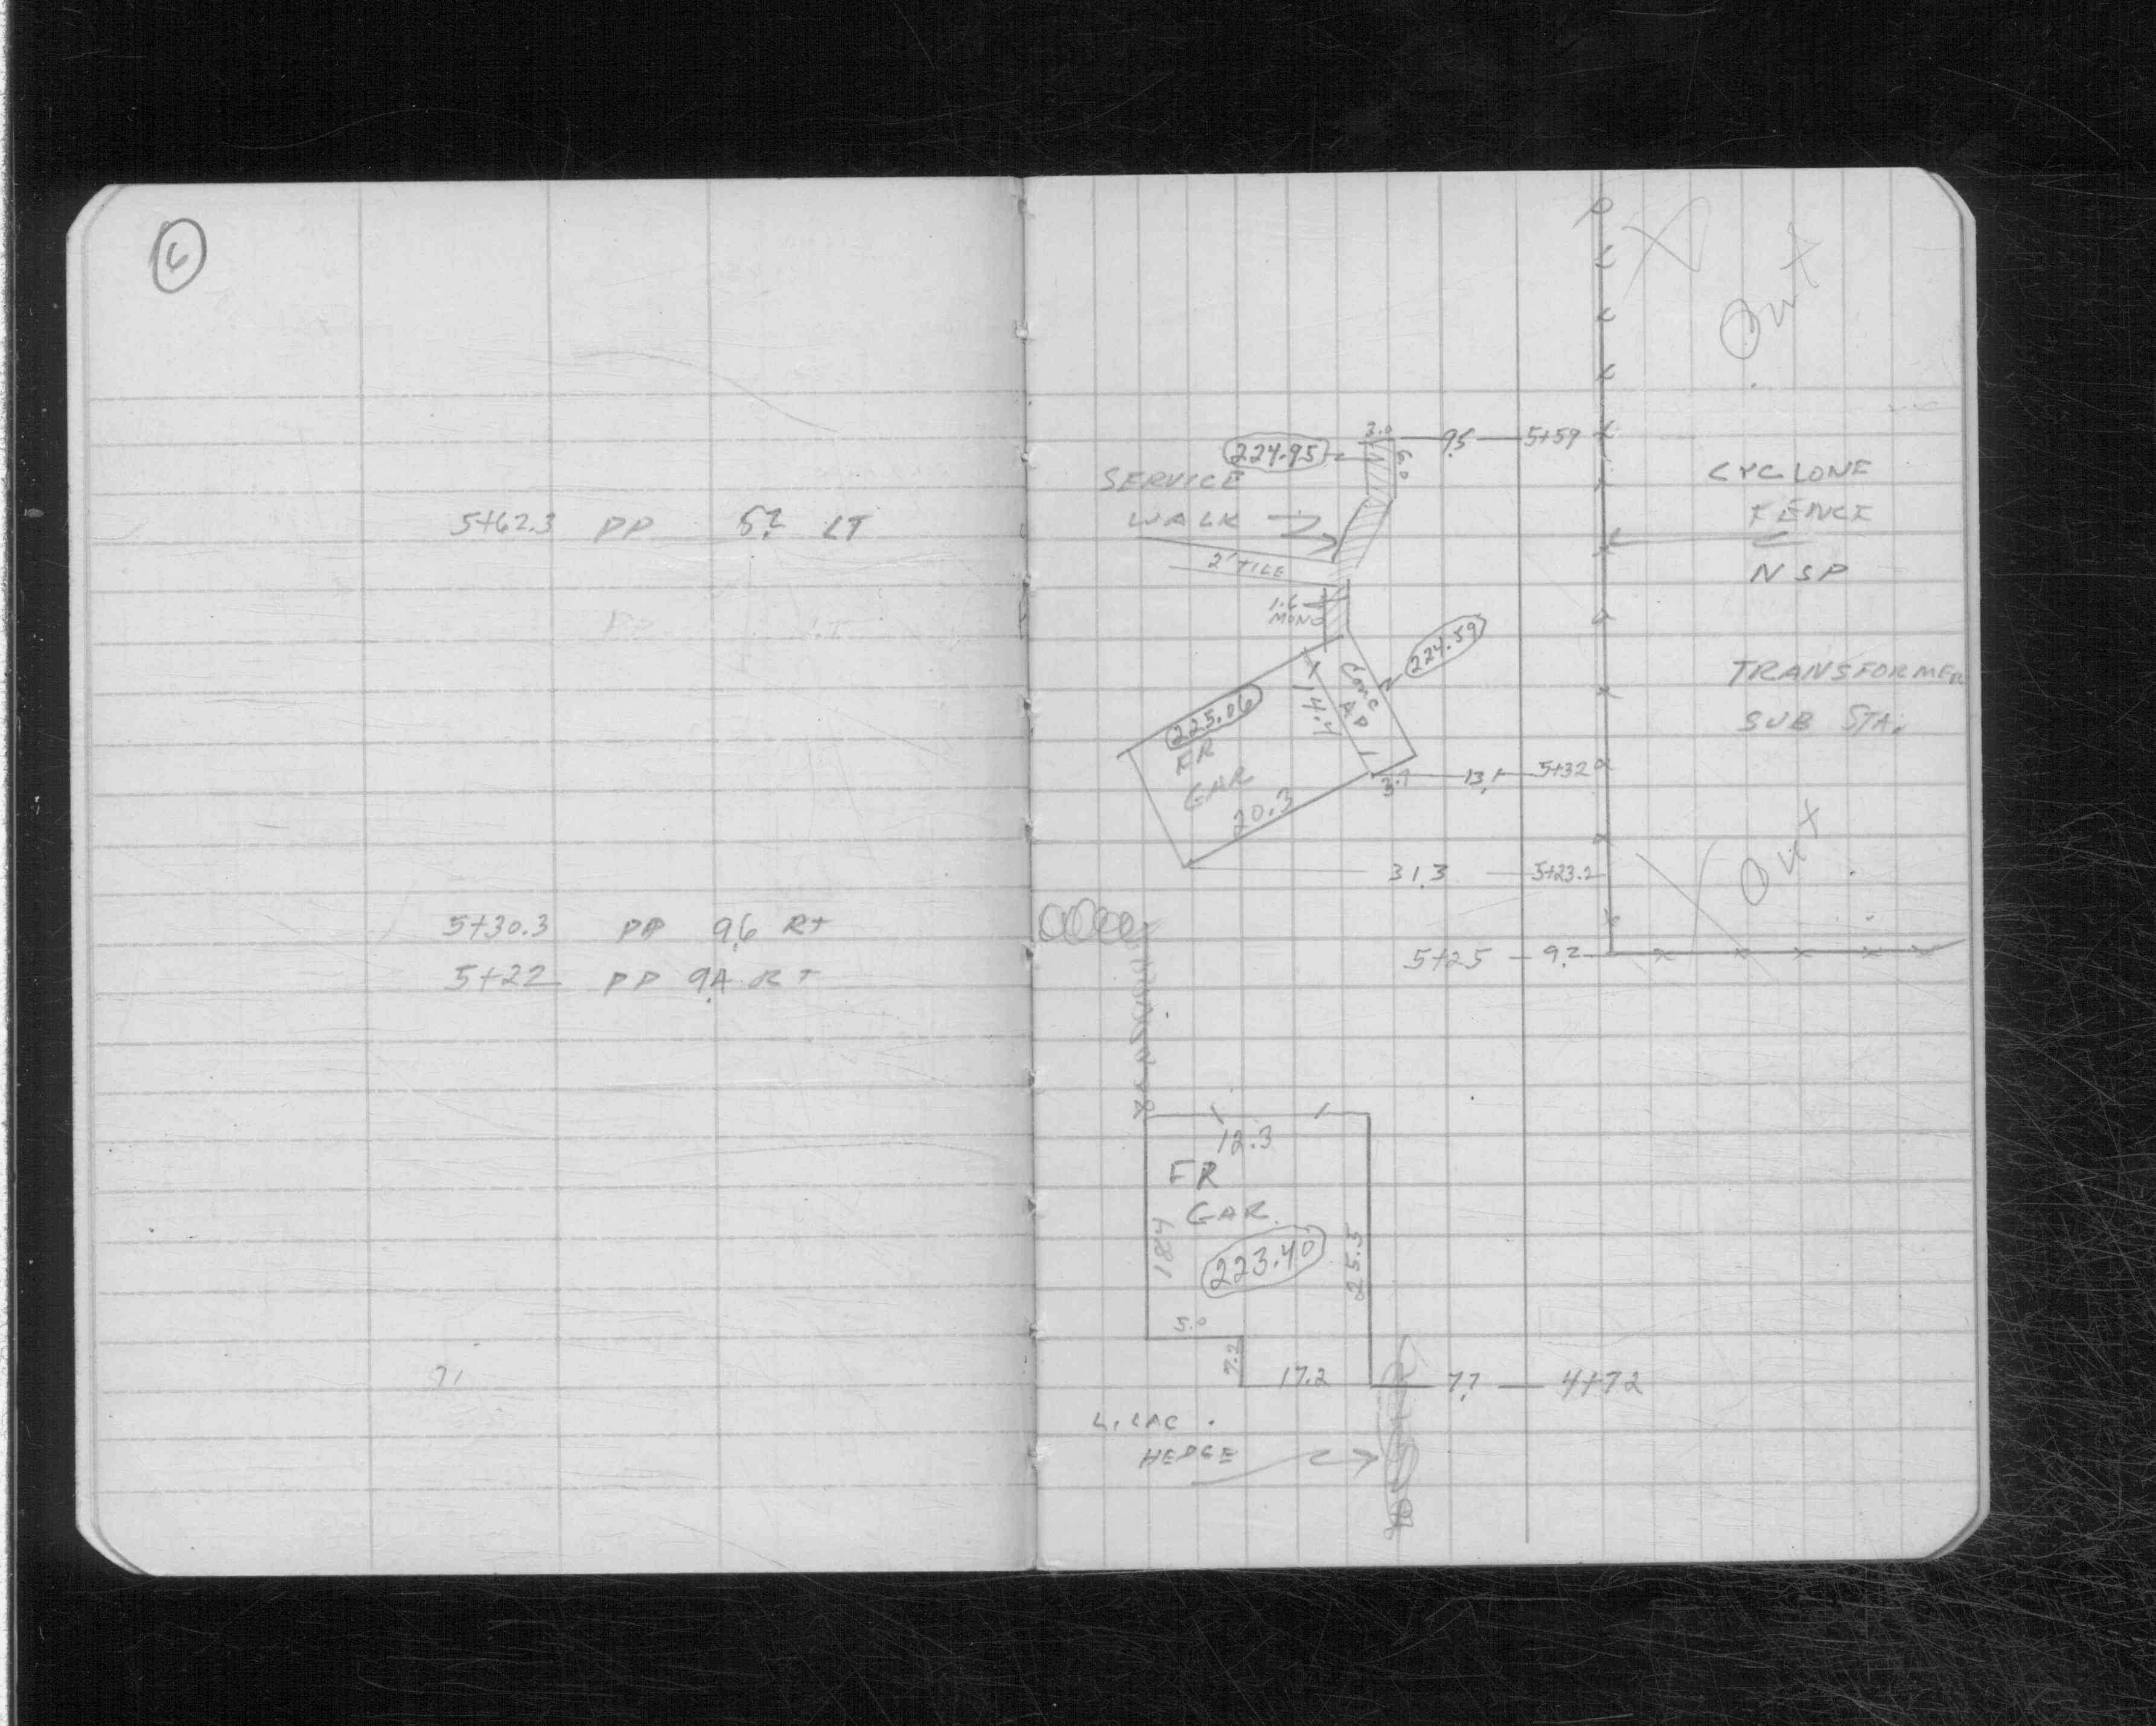 6
5+62.3 PP 5.2 LT
5+30.3 PP 9.6 RT
5+22 PP 9.4 RT
Out
3.0
224.95
9.5 5+59
6.0
SERVICE
WALK
CYCLONE
FENCE
2' TILE
NSP
1.6
MONO
224.59
CONC
AP
14.4
225.06
FR
GAR
20.3
TRANSFORMER
SUB STA.
3.1 13.1 5+32
31.3 5+23.2
Out
5+25 - 9.2
12.3
FR
GAR.
18.4
223.40
25.5
5.0
7.2
17.2 7.7 4+72
LILAC
HEDGE